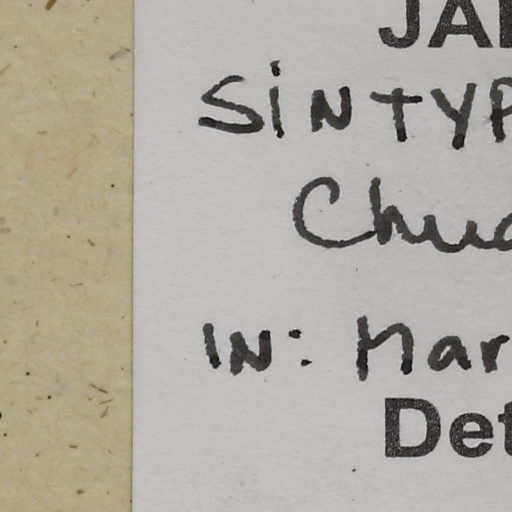 JA
SINTYP
Chu
IN: Mar
Det